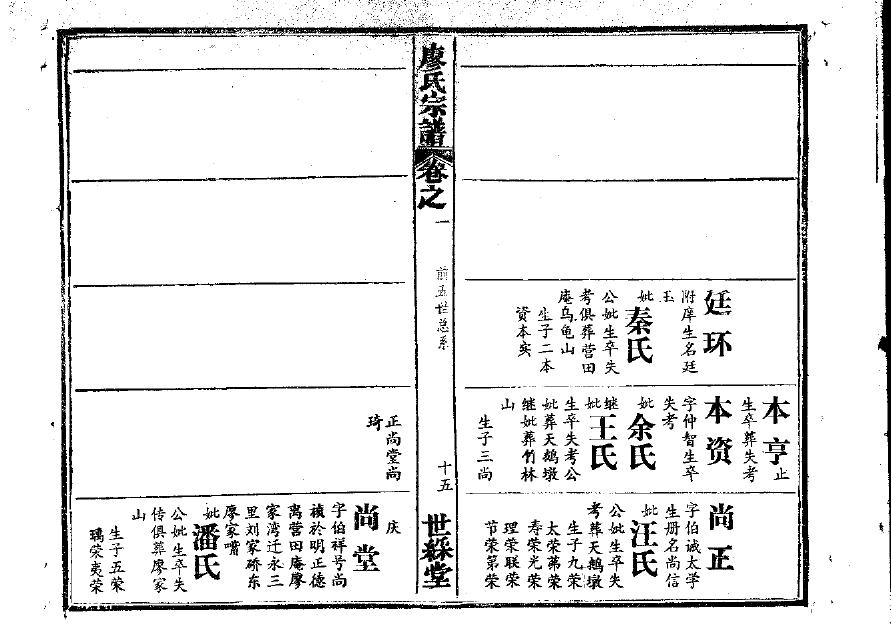 廷环
附庠生名廷
玉
妣秦氏
公妣生卒失
考俱葬营田
庵乌龟山
生子二本
资本实
本亨止
生卒葬失考
本资
字仲智生卒
失考
妣余氏
继妣王氏
生卒失考公
妣葬天鹅墩
继妣葬竹林
山
生子三尚
正尚堂尚
琦
尚正
字伯诚太学
生册名尚信
妣汪氏
公妣生卒失
考葬天鹅墩
生子九荣
太荣苐荣
寿荣光荣
理荣联荣
节荣第荣
庆
尚堂
字伯祥号尚
祯於明正德
离营田庵廖
家湾迁永三
里刘家硚东
廖家嘴
妣潘氏
公妣生卒失
传俱葬廖家
山
生子五荣
瑀荣夷荣
廖氏宗譜
卷之一
前五世总系
十五
世綵堂